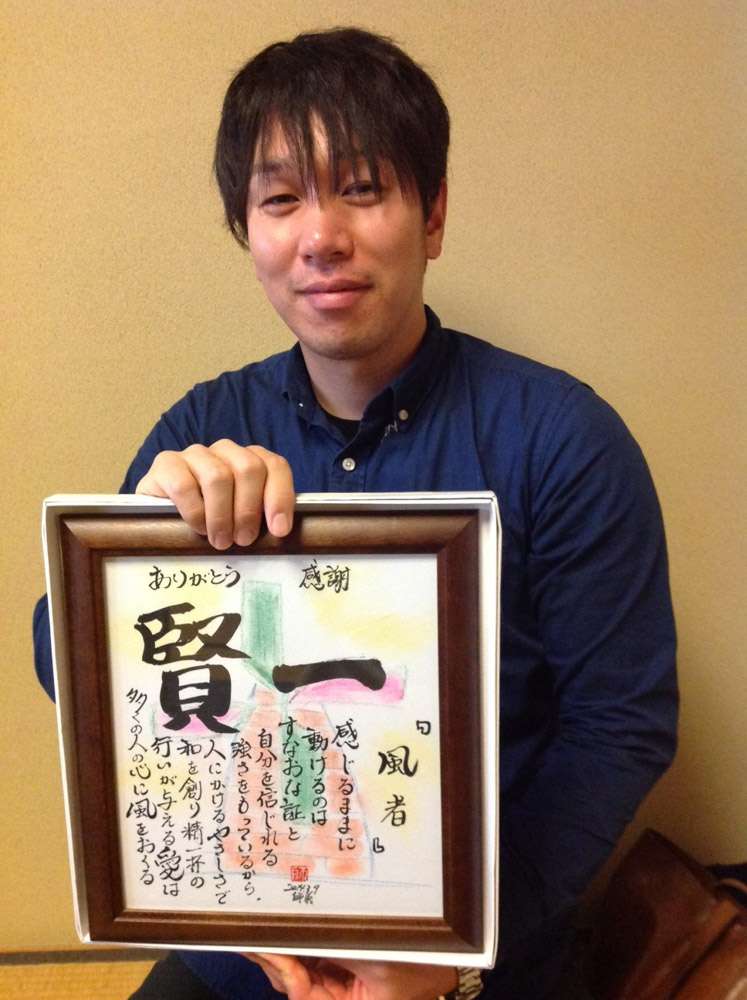 ありがとう　感謝
賢一
『風者』
感じるままに
動けるのは
すなおな証と
自分を信じれる
強さをもっているから、
人にかけるやさしさで
和を創り精一杯の
行いが与える愛は
多くの人の心に風をおくる